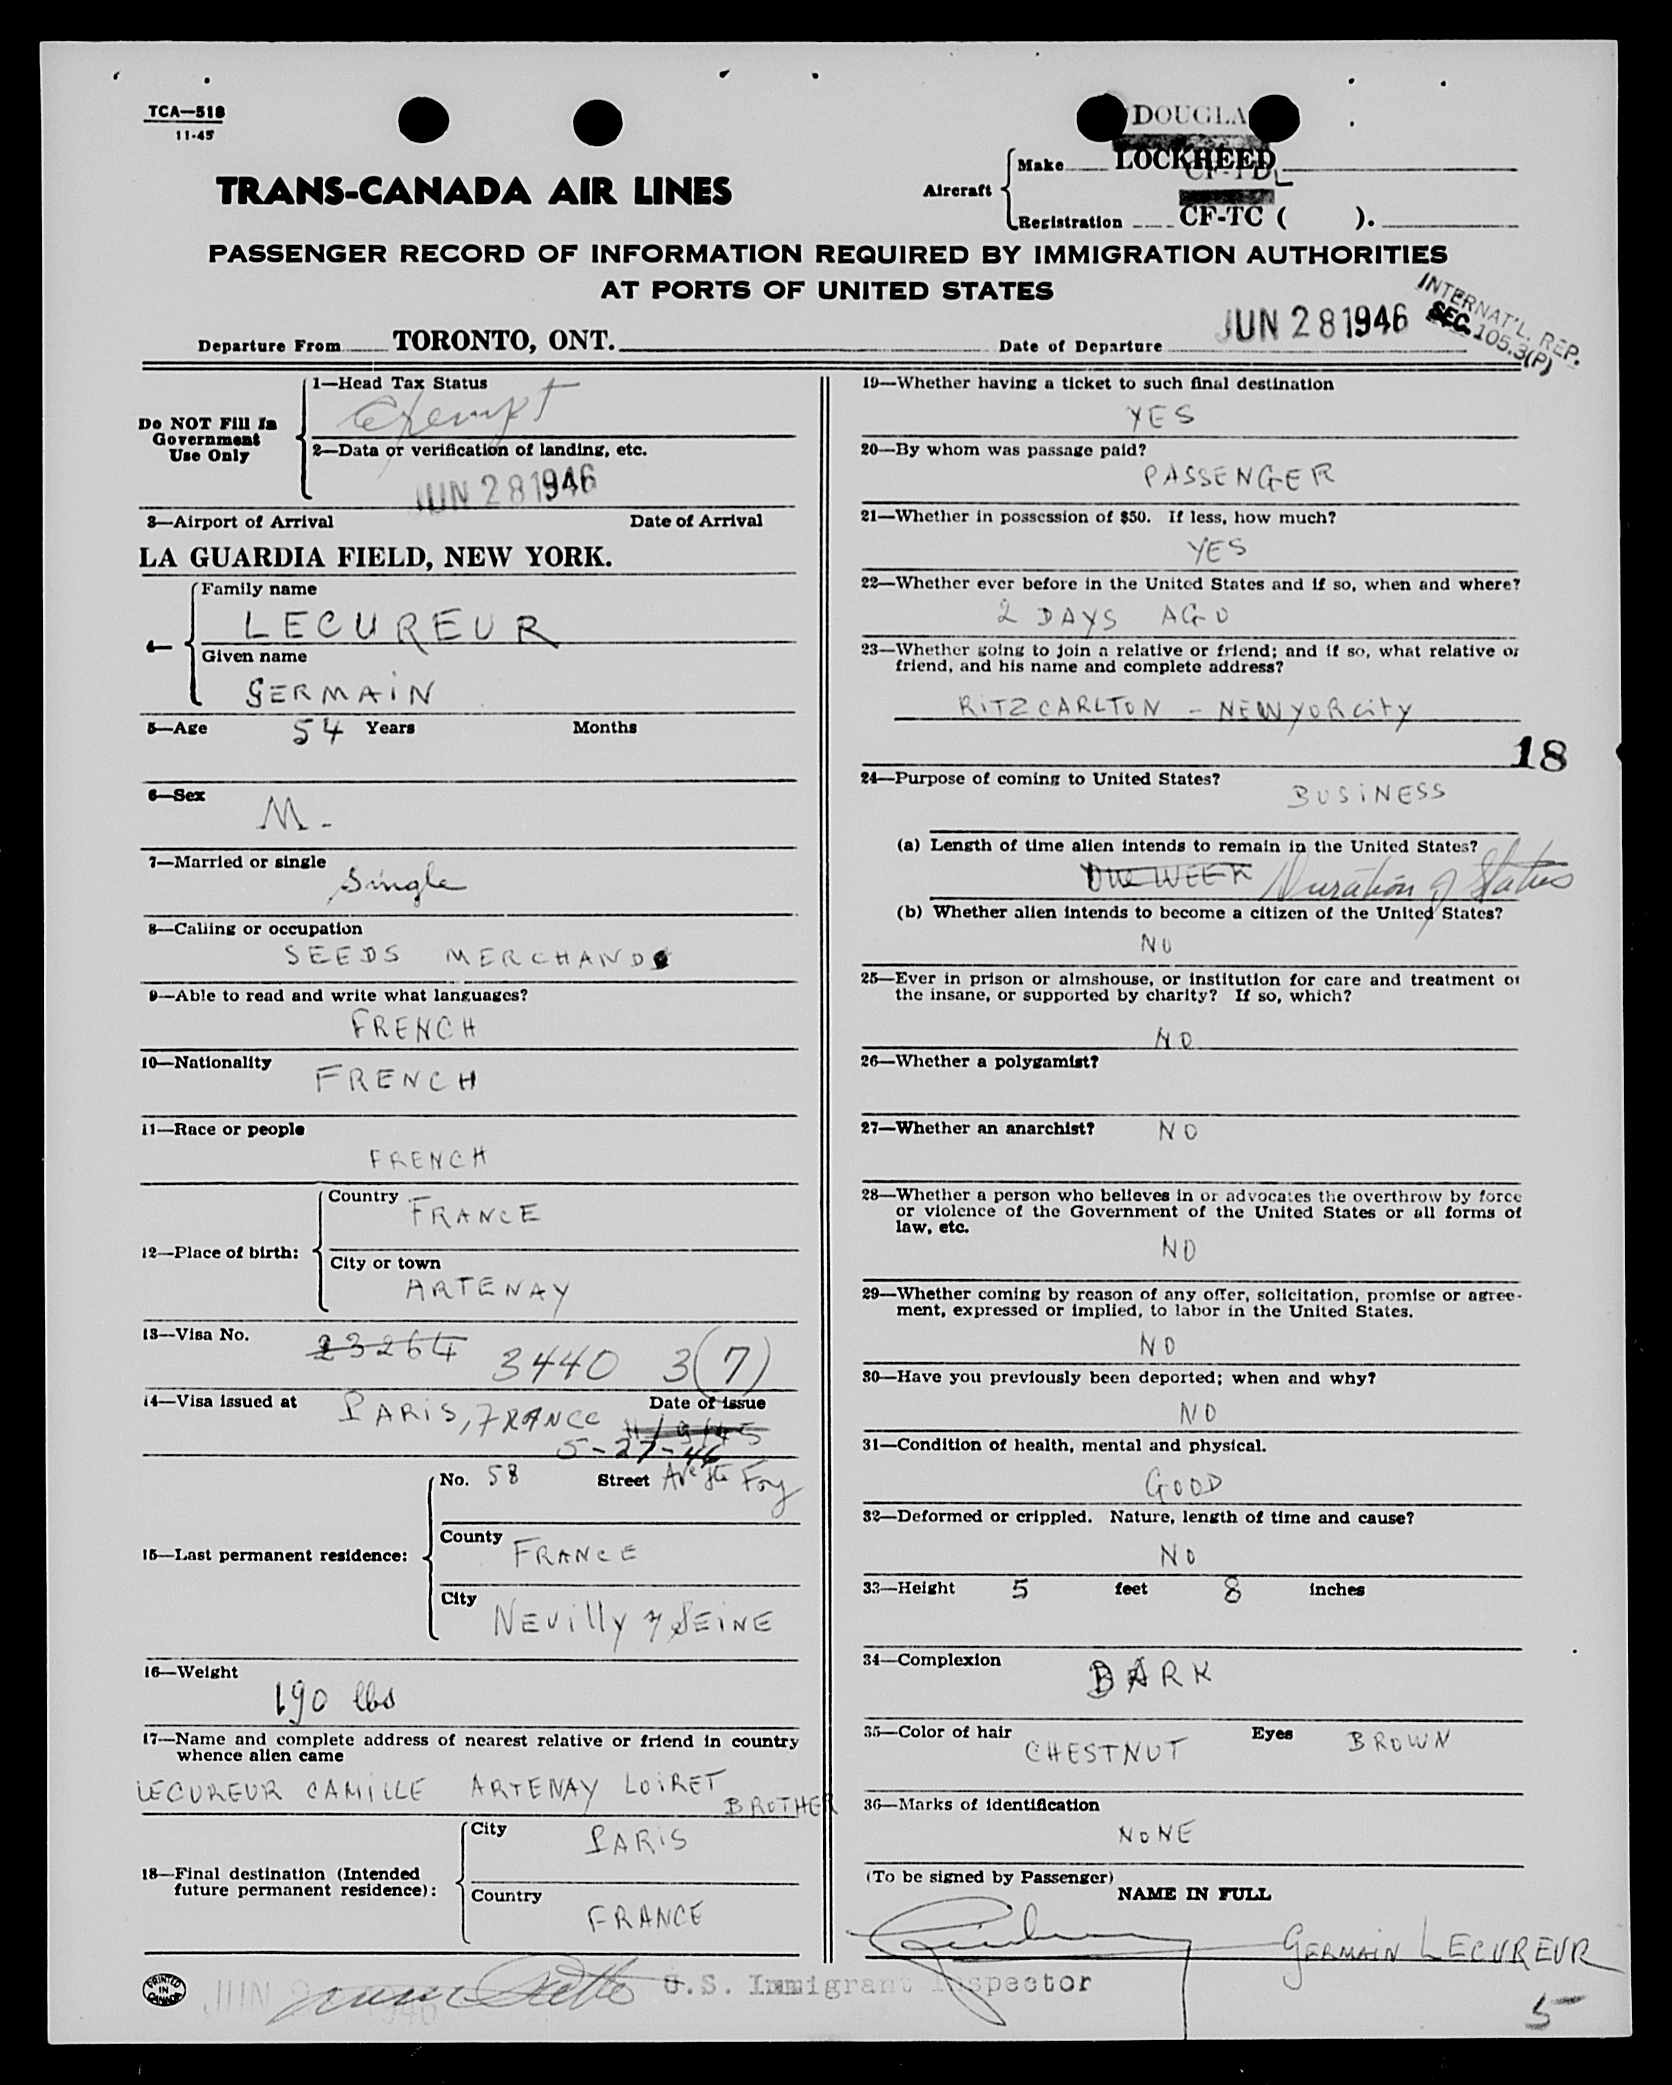 TCA—518
11-45
DOUGLA
TRANS-CANADA AIR LINES
Aircraft
Make LOCKHEED
CF-TD
Registration CF-TC ( ).
PASSENGER RECORD OF INFORMATION REQUIRED BY IMMIGRATION AUTHORITIES
AT PORTS OF UNITED STATES
INTERNAT'L. REP.
SEC. 105.3(P)
Departure From TORONTO, ONT.
Date of Departure JUN 28 1946
Do NOT Fill In
Government
Use Only
1—Head Tax Status
Exempt
2—Data or verification of landing, etc.
JUN 28 1946
3—Airport of Arrival Date of Arrival
LA GUARDIA FIELD, NEW YORK.
4—
Family name
LECUREUR
Given name
GERMAIN
5—Age 54 Years Months
6—Sex
M -
7—Married or single
Single
8—Calling or occupation
SEEDS MERCHAND
9—Able to read and write what languages?
FRENCH
10—Nationality
FRENCH
11—Race or people
FRENCH
12—Place of birth:
Country FRANCE
City or town
ARTENAY
13—Visa No. 23264 3440 3(7)
14—Visa issued at PARIS, FRANCE Date of issue
11/9/45
5-27-46
15—Last permanent residence:
No. 58 Street Ave Ste Foy
County FRANCE
City NEUilly s/ SEINE
16—Weight
190 lbs
17—Name and complete address of nearest relative or friend in country
whence alien came
LECUREUR CAMILLE ARTENAY LOIRET
BROTHER
18—Final destination (Intended
future permanent residence):
City PARIS
Country
FRANCE
19—Whether having a ticket to such final destination
YES
20—By whom was passage paid?
PASSENGER
21—Whether in possession of $50. If less, how much?
YES
22—Whether ever before in the United States and if so, when and where?
2 DAYS AGO
23—Whether going to join a relative or friend; and if so, what relative or
friend, and his name and complete address?
RITZCARLTON - NEWYORCITY
18
24—Purpose of coming to United States?
BUSINESS
(a) Length of time alien intends to remain in the United States?
One WEEK Duration of Status
(b) Whether alien intends to become a citizen of the United States?
NO
25—Ever in prison or almshouse, or institution for care and treatment of
the insane, or supported by charity? If so, which?
NO
26—Whether a polygamist?
27—Whether an anarchist? NO
28—Whether a person who believes in or advocates the overthrow by force
or violence of the Government of the United States or all forms of
law, etc.
NO
29—Whether coming by reason of any offer, solicitation, promise or agree-
ment, expressed or implied, to labor in the United States.
NO
30—Have you previously been deported; when and why?
NO
31—Condition of health, mental and physical.
GOOD
32—Deformed or crippled. Nature, length of time and cause?
NO
33—Height 5 feet 8 inches
34—Complexion
DARK
35—Color of hair CHESTNUT Eyes BROWN
36—Marks of identification
NONE
(To be signed by Passenger)
NAME IN FULL
GERMAIN LECUREUR
PRINTED
IN
CANADA
JUN
U.S. Immigrant Inspector
5